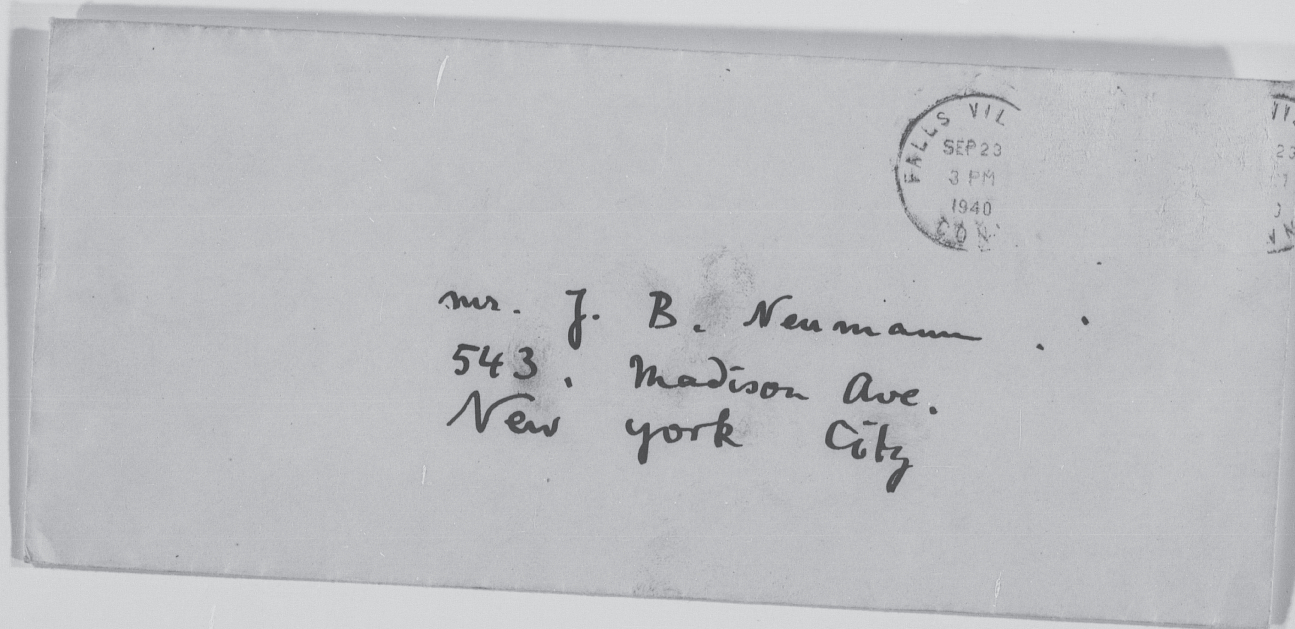 FALLS VIL
SEP 23
3 PM
1940
CON
Mr. J. B. Neumann.
543. Madison Ave.
New York City